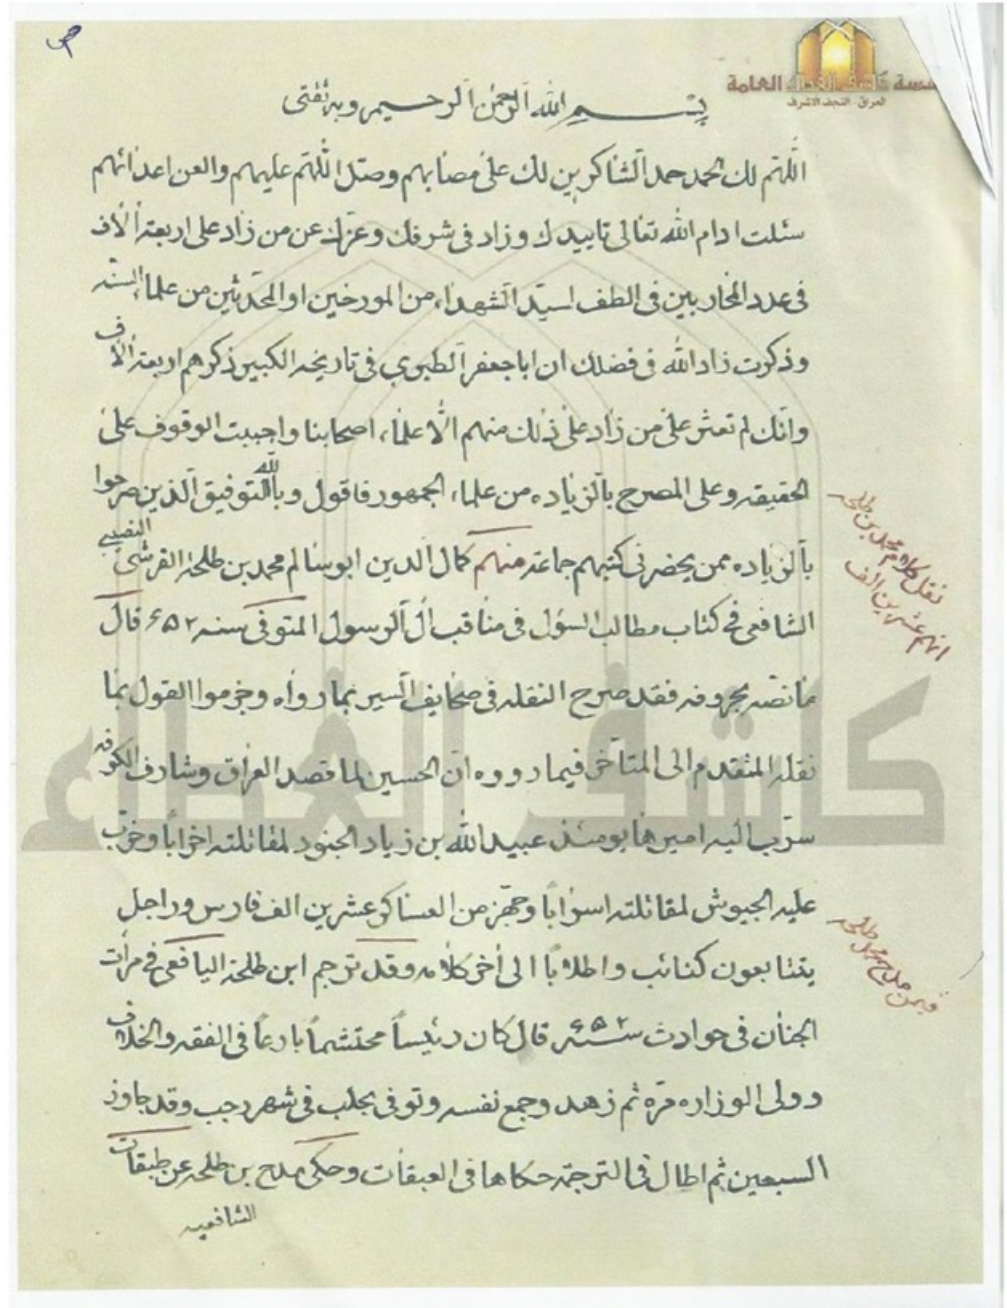 مؤسسة كاشف الغطاء العامة
العراق - النجف الاشرف
بسم الله الرحمن الرحيم وبه ثقتى
اللهم لك الحمد حمد الشاكرين لك على مصابهم وصل اللهم عليهم والعن اعدائهم
سئلت ادام الله تعالى تاييدك وزاد فى شرفك وعزك عن من زاد على اربعة الاف
فى عدد المحاربين فى الطف لسيد الشهداء من المورخين او المحدثين من علماء السنه
وذكرت زاد الله فى فضلك ان ابا جعفر الطبرى فى تاريخه الكبير ذكرهم اربعة الاف
وانك لم تعثر على من زاد على ذلك منهم الا علماء اصحابنا واحببت الوقوف على
الحقيقه وعلى المصرح بالزياده من علماء الجمهور فاقول وبالله التوفيق الذين صرحوا
بالزياده ممن يحضرنى كتبهم جماعة منهم كمال الدين ابو سالم محمد بن طلحة القرشى النصيبى
الشافعى فى كتاب مطالب السؤل فى مناقب ال الرسول المتوفى سنه ٦٥٢ قال
ما نصه بحروفه فقد صرح النقله فى صحايف السير بما رواه وجزموا القول بما
نقله المتقدم الى المتاخر فيما رووه ان الحسين لما قصد العراق وشارف الكوفه
سرب اليه اميرها يومئذ عبيد الله بن زياد الجنود لمقاتلته احزابا وحزب
عليه الجيوش لمقاتلته اسرابا وجهز من العساكر عشرين الف فارس وراجل
يتتابعون كتائب واطلابا الى اخر كلامه وقد ترجم ابن طلحة اليافعى فى مرات
الجنان فى حوادث سنه ٦٥٢ قال كان رئيسا محتشما بارعا فى الفقه والخلاف
وولى الوزاره مرة ثم زهد وجمع نفسه وتوفى بحلب فى شهر رجب وقد جاوز
السبعين ثم اطال فى الترجمة حكاها فى العبقات وحكى مدح بن طلحه عن طبقات
الشافعيه
نقل كلام محمد بن طلحه
انهم عشرين الف
فيمن مدح محمد طلحه
كاشف الغطاء